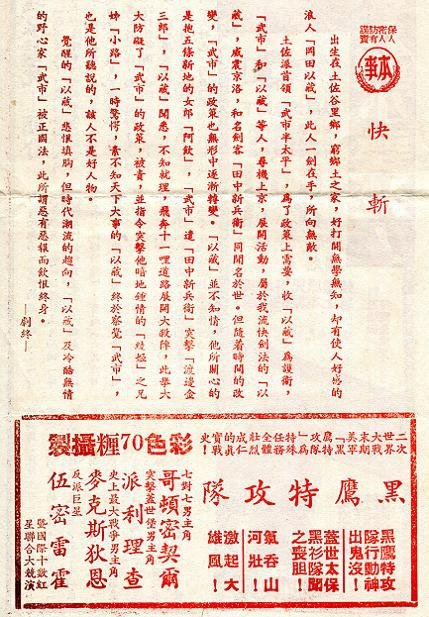 保密防諜
人人有責
本事
快斬
出生在土佐谷里鄉，窮鄉士之家，好打鬪無學無知，却有使人好感的
浪人「岡田以藏」，此人一劍在手，所向無敵。
土佐派首領「武市半太平」，為了政策上需要，收「以藏」為護衛，
「武市」和「以藏」等人，尋機上京，展開活動，屬於我流快劍法的「以
藏」，威震京洛，和名劍客「田中新兵衛」同聞名於世。但隨着時間的改
變，「武市」的政策也無形中逐漸轉變。「以藏」並不知情，他所關心的
是抱五條新地的女郎「阿欽」，「武市」遣「田中新兵衛」突擊「渡邊金
三郎」，「以藏」聞悉，不知就理，飛奔十一哩道路展開大殺陣，此舉大
大防礙了「武市」的政策，被責，並指令突擊他暗地鍾情的「綾姬」之兄
姊「小路」，一時驚愕，素不知天下大事的「以藏」終於察覺「武市」，
也是他所聽說的，該人不是好人物。
覺醒的「以藏」悲恨填胸，但時代潮流的趨向，「以藏」及冷酷無情
的野心家「武市」被正國法，此所謂惡有惡報而飲恨終身。
—劇終—
二次世界大戰末期美軍「黑鷹特攻隊」為特殊任務全體壯烈成仁的真實戰史！
黑鷹特攻隊
黑鷹特攻
隊行動神
出鬼沒！
蓋世太保
黑衫隊聞
之喪膽！
氣吞山
河壯！
激起大
雄風！
彩色70糎攝製
七對七男主角
哥頓密契爾
突擊蓋世堡男主角
派利理查
史上最大戰爭男主角
麥克斯狄恩
反派巨星
伍密雷霍
暨國際十數紅
星聯合大競演